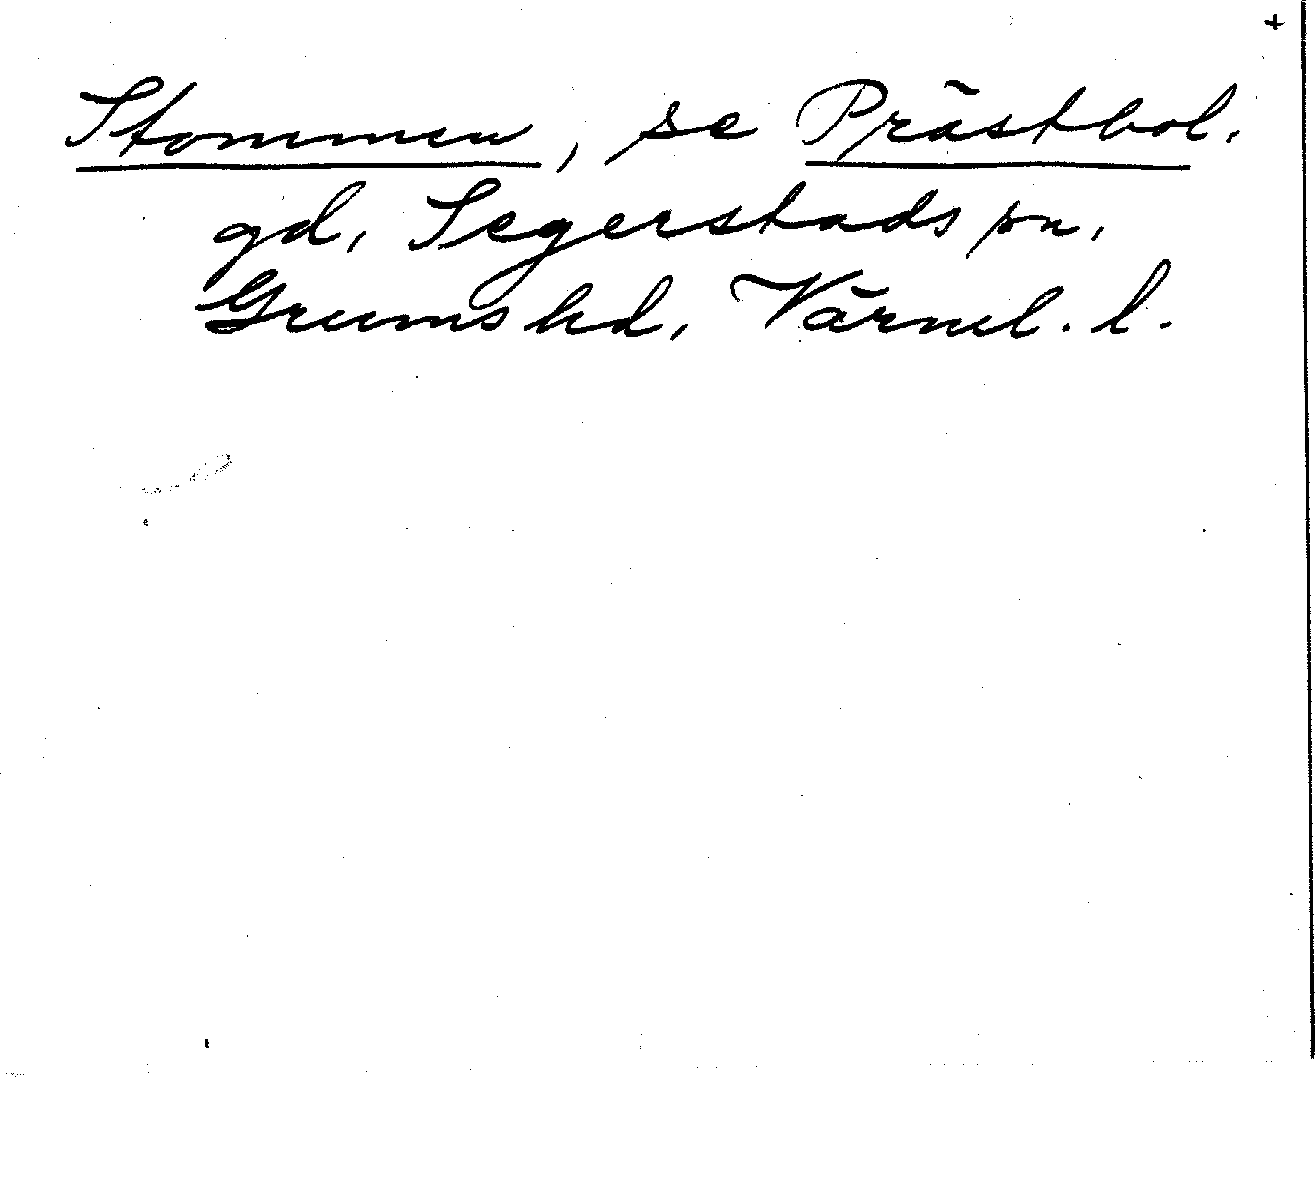 +
Stommen, se Prästbol.
gd, Segerstads sn,
Grums hd, Värml. l.